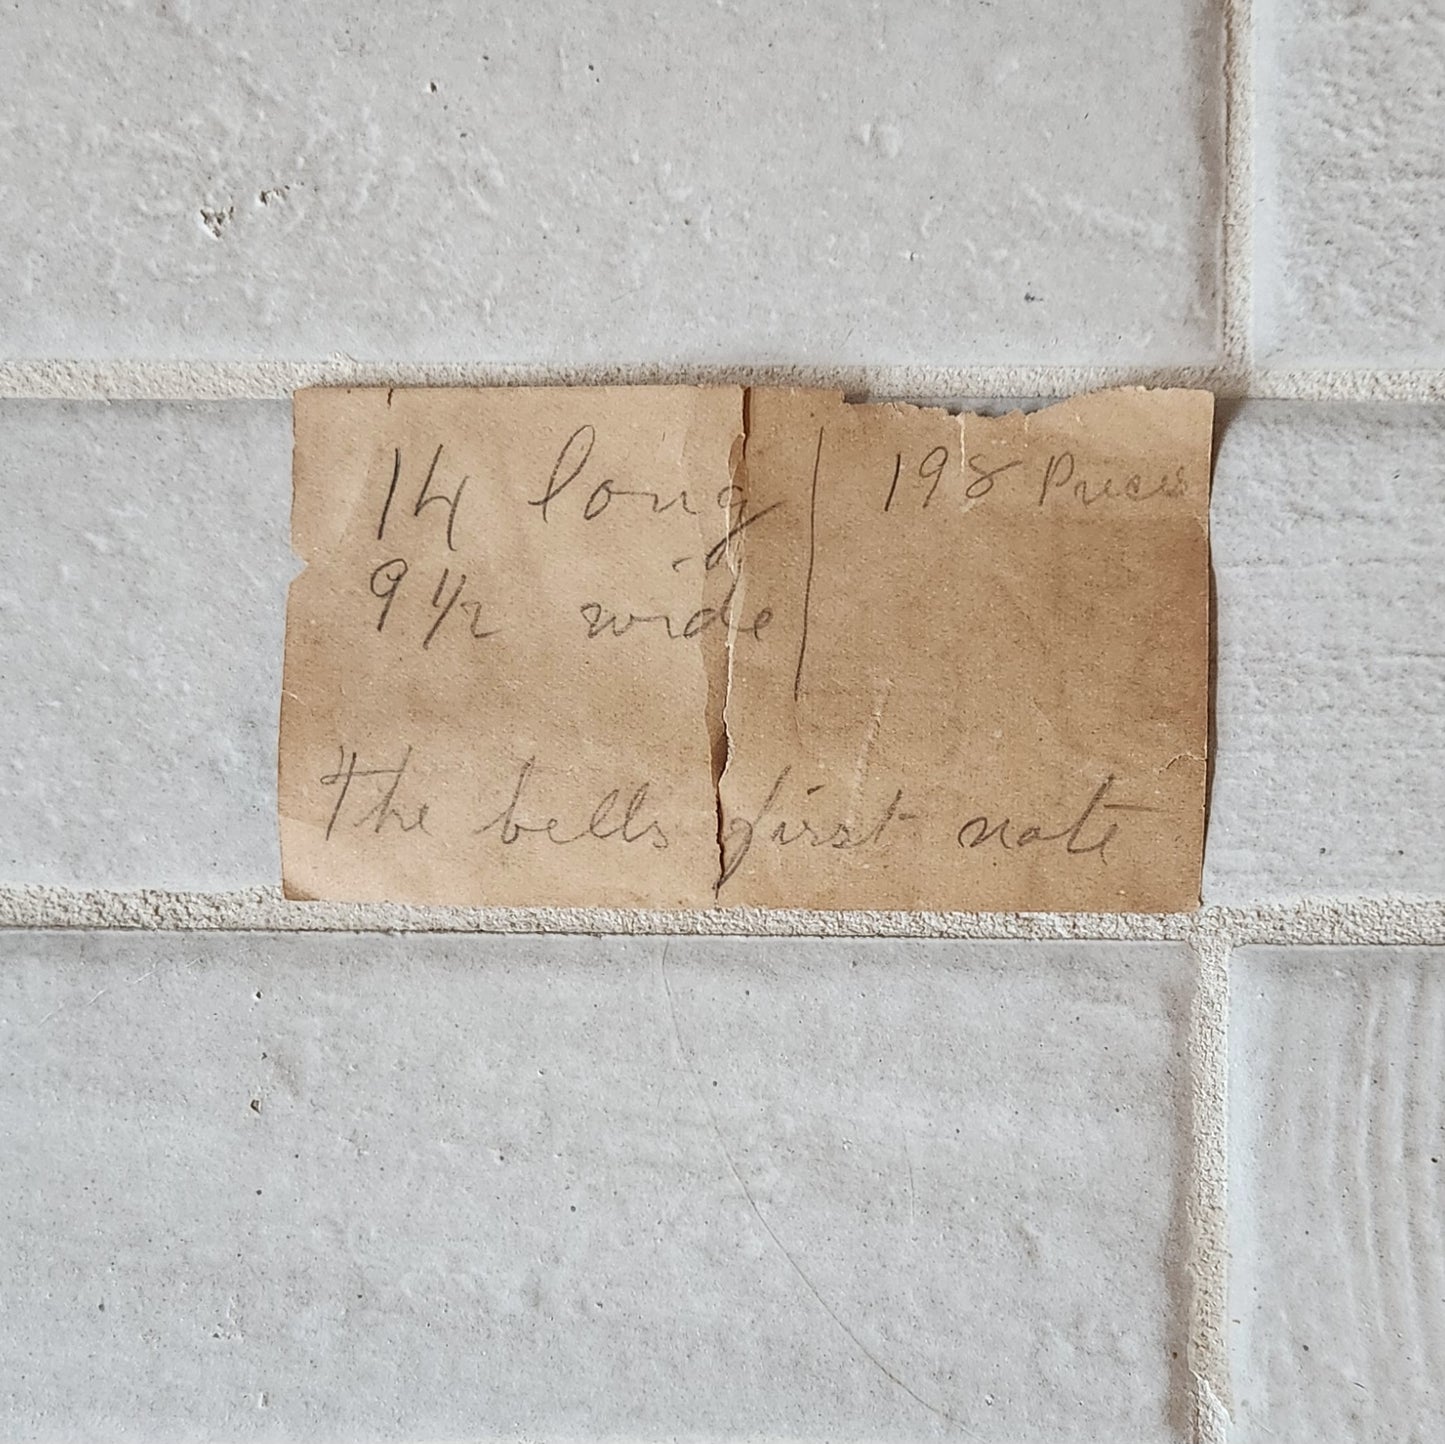 14 long
9 1/2 wide
198 Pieces
The bells first note